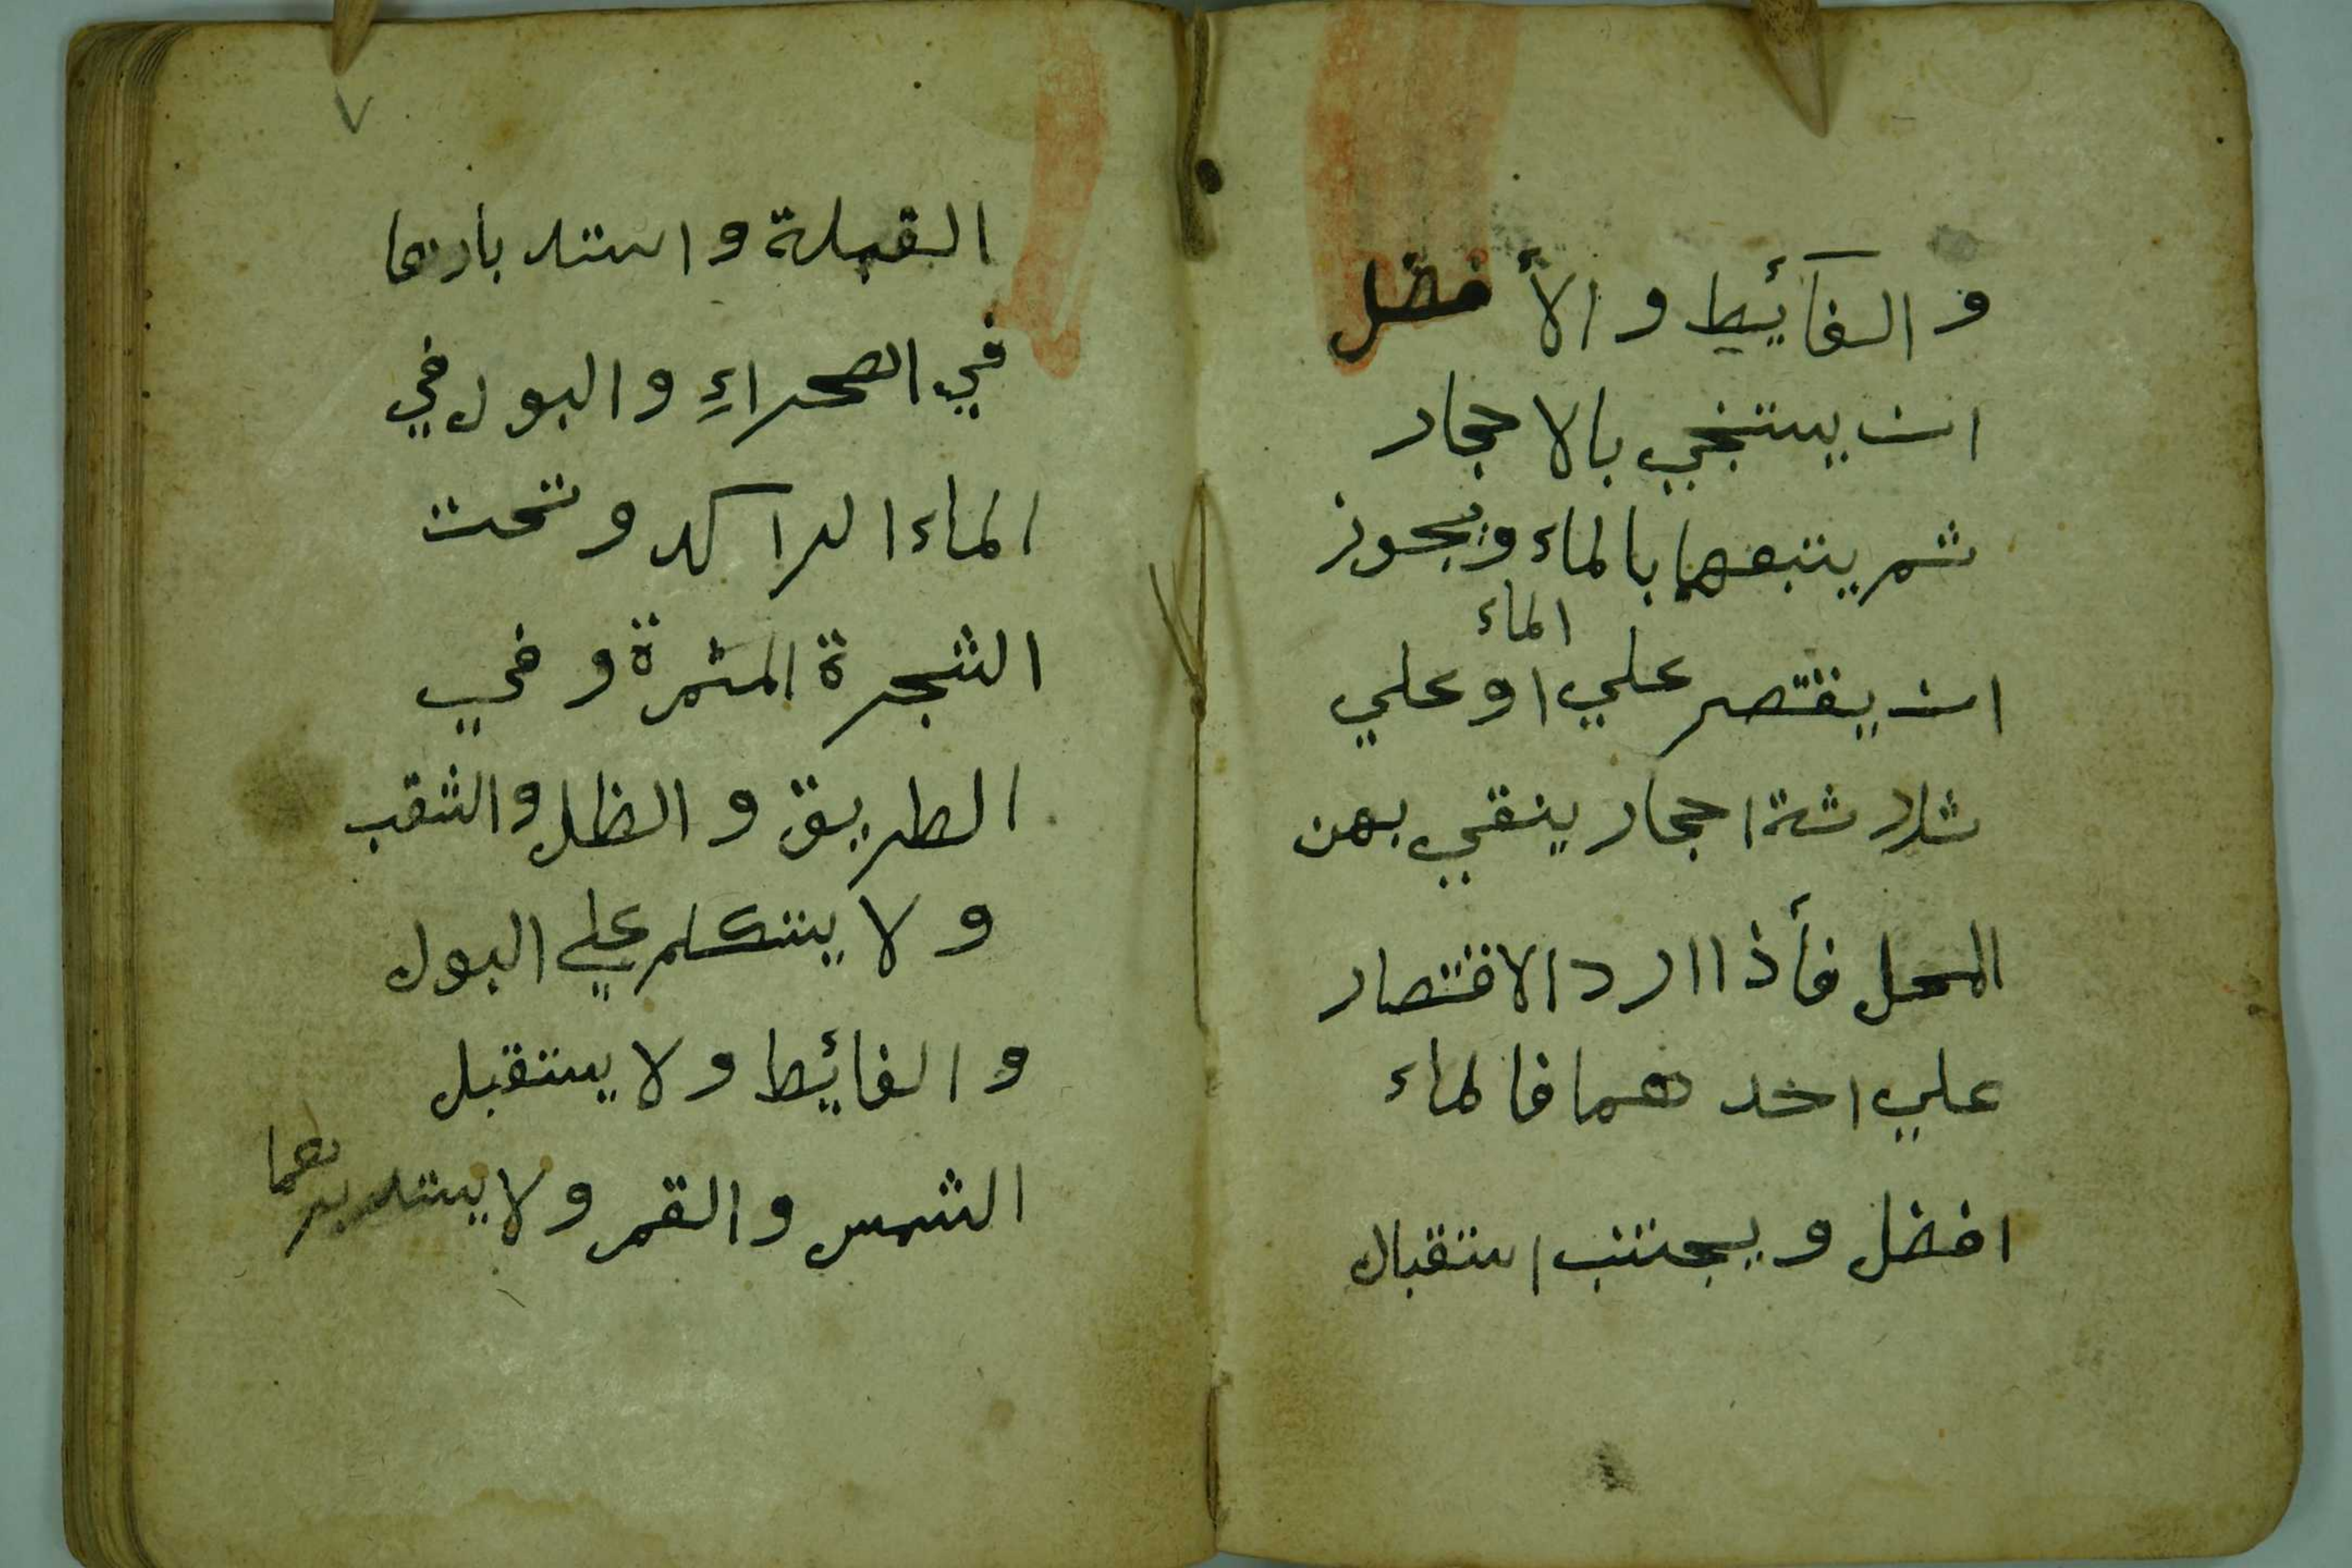 والغائيط والأفضل
ان يستنجي بالاحجار
ثم يتبعها بالماء ويجوز
ان يقتصر علي الماء او علي
ثلاثة احجار ينقي بهن
المحل فأذا ارد الاقتصار
علي احد هما فالماء
افضل ويجتنب استقبال
٧
القبلة واستدبارها
في الصحراءِ والبول في
الماء الراكد وتحت
الشجرة المثمرة وفي
الطريق والظل والثقب
ولا يتكلم علي البول
والغائيط ولا يستقبل
الشمس والقمر ولا يستدبرهما